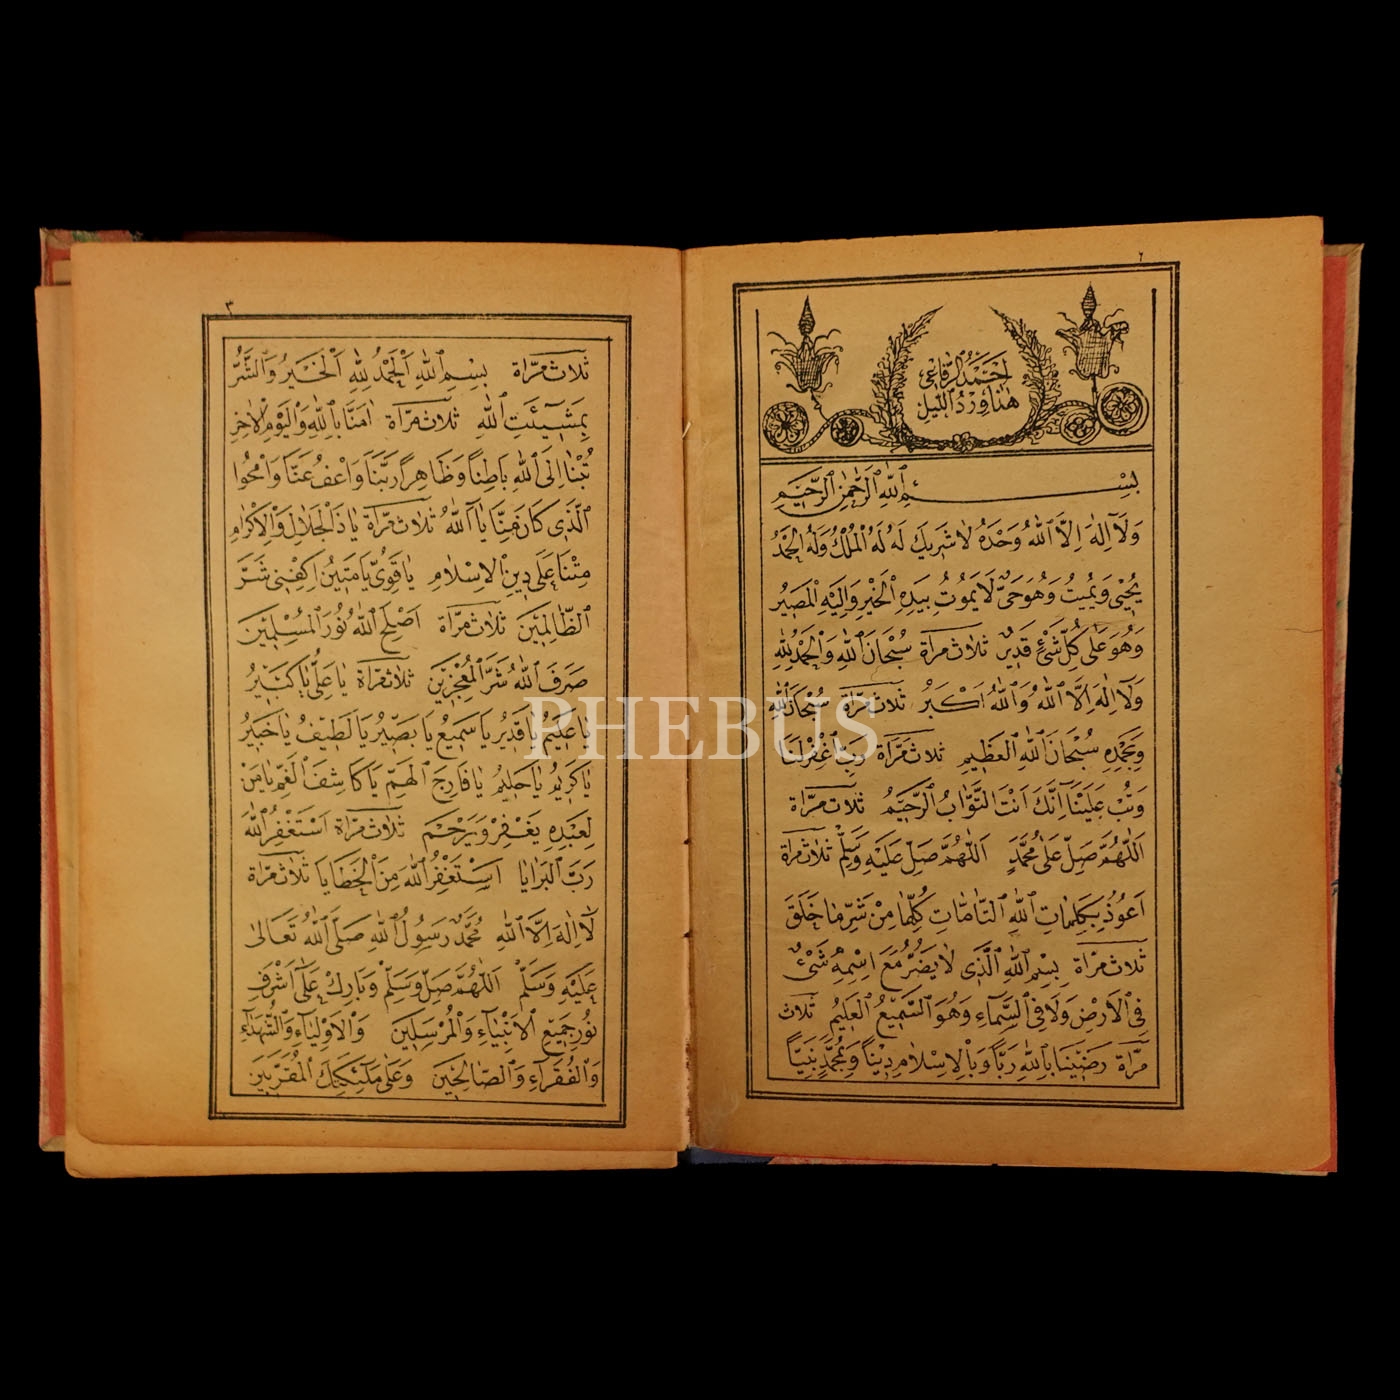 ٢
احمد الرفاعى
هذا ورد الليل
بسم الله الرحمن الرحيم
وَلَا اِلٰهَ اِلَّا اللهُ وَحْدَهُ لَا شَرِيكَ لَهُ لَهُ الْمُلْكُ وَلَهُ الْحَمْدُ
يُحْيِى وَيُمِيتُ وَهُوَ حَىٌّ لَا يَمُوتُ بِيَدِهِ الْخَيْرُ وَاِلَيْهِ الْمَصِيرُ
وَهُوَ عَلٰى كُلِّ شَىْءٍ قَدِيرٌ ثلاث مرّاة سُبْحَانَ اللهِ وَالْحَمْدُ لِلّٰهِ
وَلَا اِلٰهَ اِلَّا اللهُ وَاللهُ اَكْبَرُ ثلاث مرّاة سُبْحَانَ اللهِ
وَبِحَمْدِهِ سُبْحَانَ اللهِ الْعَظِيمِ ثلاث مرّاة رَبِّ اغْفِرْ لَنَا
وَتُبْ عَلَيْنَا اِنَّكَ اَنْتَ التَّوَّابُ الرَّحِيمُ ثلاث مرّاة
اَللّٰهُمَّ صَلِّ عَلٰى مُحَمَّدٍ اَللّٰهُمَّ صَلِّ عَلَيْهِ وَسَلِّمْ ثلاث مرّاة
اَعُوذُ بِكَلِمَاتِ اللهِ التَّامَّاتِ كُلِّهَا مِنْ شَرِّ مَا خَلَقَ
ثلاث مرّاة بِسْمِ اللهِ الَّذِى لَا يَضُرُّ مَعَ اسْمِهِ شَىْءٌ
فِى الْاَرْضِ وَلَا فِى السَّمَاءِ وَهُوَ السَّمِيعُ الْعَلِيمُ ثلاث
مرّاة رَضِينَا بِاللهِ رَبًّا وَبِالْاِسْلَامِ دِينًا وَبِمُحَمَّدٍ نَبِيًّا
٣
ثلاث مرّاة بِسْمِ اللهِ اَلْحَمْدُ لِلّٰهِ اَلْخَيْرُ وَالشَّرُّ
بِمَشِيئَتِ اللهِ ثلاث مرّاة اٰمَنَّا بِاللهِ وَالْيَوْمِ الْاٰخِرِ
تُبْنَا اِلَى اللهِ بَاطِنًا وَظَاهِرًا رَبَّنَا وَاعْفُ عَنَّا وَامْحُوا
الَّذِى كَانَ مِنَّا يَا اَللهُ ثلاث مرّاة يَا ذَا الْجَلَالِ وَالْاِكْرَامِ
مِتْنَا عَلٰى دِينِ الْاِسْلَامِ يَا قَوِىُّ يَا مَتِينُ اِكْفِنِى شَرَّ
الظَّالِمِينَ ثلاث مرّاة اَصْلِحِ اللهُ نُورَ الْمُسْلِمِينَ
صَرَفَ اللهُ شَرَّ الْمُعْجِزِينَ ثلاث مرّاة يَا عَلِىُّ يَا كَبِيرُ
يَا عَلِيمُ يَا قَدِيرُ يَا سَمِيعُ يَا بَصِيرُ يَا لَطِيفُ يَا خَبِيرُ
يَا كَرِيمُ يَا حَلِيمُ يَا فَارِجَ الْهَمِّ يَا كَاشِفَ الْغَمِّ يَا مَنْ
لِعَبْدِهِ يَغْفِرْ وَيَرْحَمْ ثلاث مرّاة اَسْتَغْفِرُ اللهَ
رَبَّ الْبَرَايَا اَسْتَغْفِرُ اللهَ مِنَ الْخَطَايَا ثلاث مرّاة
لَا اِلٰهَ اِلَّا اللهُ مُحَمَّدٌ رَسُولُ اللهِ صَلَّى اللهُ تَعَالٰى
عَلَيْهِ وَسَلَّمْ اَللّٰهُمَّ صَلِّ وَسَلِّمْ وَبَارِكْ عَلٰى اَشْرَفِ
نُورِ جَمِيعِ الْاَنْبِيَاءِ وَالْمُرْسَلِينَ وَالْاَوْلِيَاءِ وَالشُّهَدَاءِ
وَالْفُقَرَاءِ وَالصَّالِحِينَ وَعَلٰى مَلٰئِكَتِكَ الْمُقَرَّبِينَ
PHEBUS